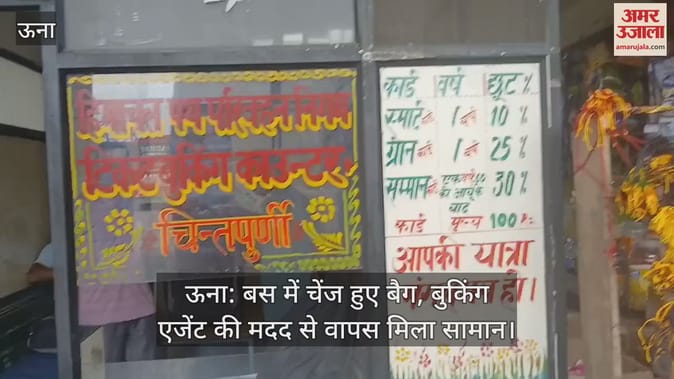 ऊना:
अमर
उजाला
amarujala.com
हिमाचल पथ परिवहन निगम
टिकट बुकिंग काउन्टर
चिन्तपुर्णी
कार्ड वर्ष छूट %
स्मार्ट 1 10 %
ग्रीन 1 25 %
सम्मान 30 %
बाद
कार्ड मूल्य 100 रु.
आपकी यात्रा
हो।
ऊना: बस में चेंज हुए बैग, बुकिंग
एजेंट की मदद से वापस मिला सामान।